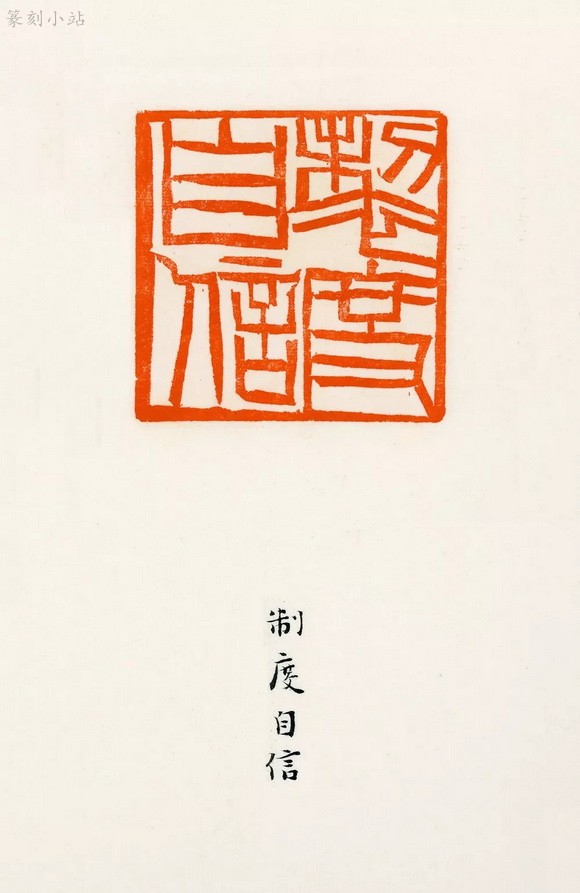 篆刻小站
製度
自信
制度自信